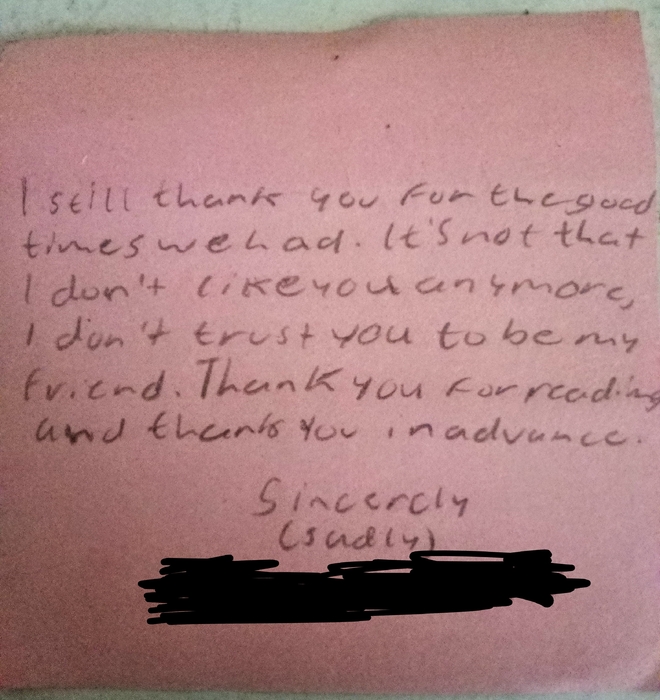 I still thank you for the good
times we had. It's not that
I don't like you anymore,
I don't trust you to be my
friend. Thank you for reading
and thank you in advance.
Sincerely
(sadly)